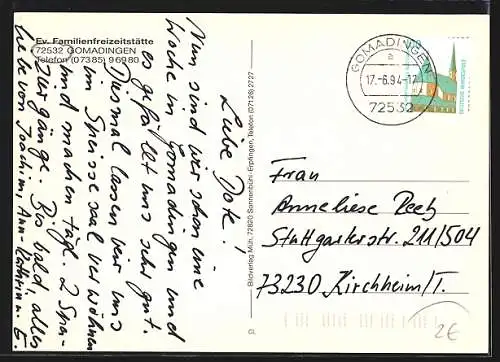 Ev. Familienfreizeitstätte
72532 GOMADINGEN
Telefon (07385) 96980
Liebe Dote!
Nun sind wir schon eine
Woche in Gomadingen und
es gefällt uns sehr gut.
Diesmal lassen wir uns
im Speisesaal verwöhnen
und machen tägl. 2 Spa-
ziergänge. Bis bald, alles
Liebe von Joachim, Ann-Kathrin u. E.
Bildverlag Müh, 72820 Sonnenbühl-Erpfingen, Telefon (07128) 2727
GOMADINGEN
a
17.-6.94-17
72532
DEUTSCHE BUNDESPOST
Frau
Anneliese Reetz
Stuttgarterstr. 211/504
73230 Kirchheim/T.
2€